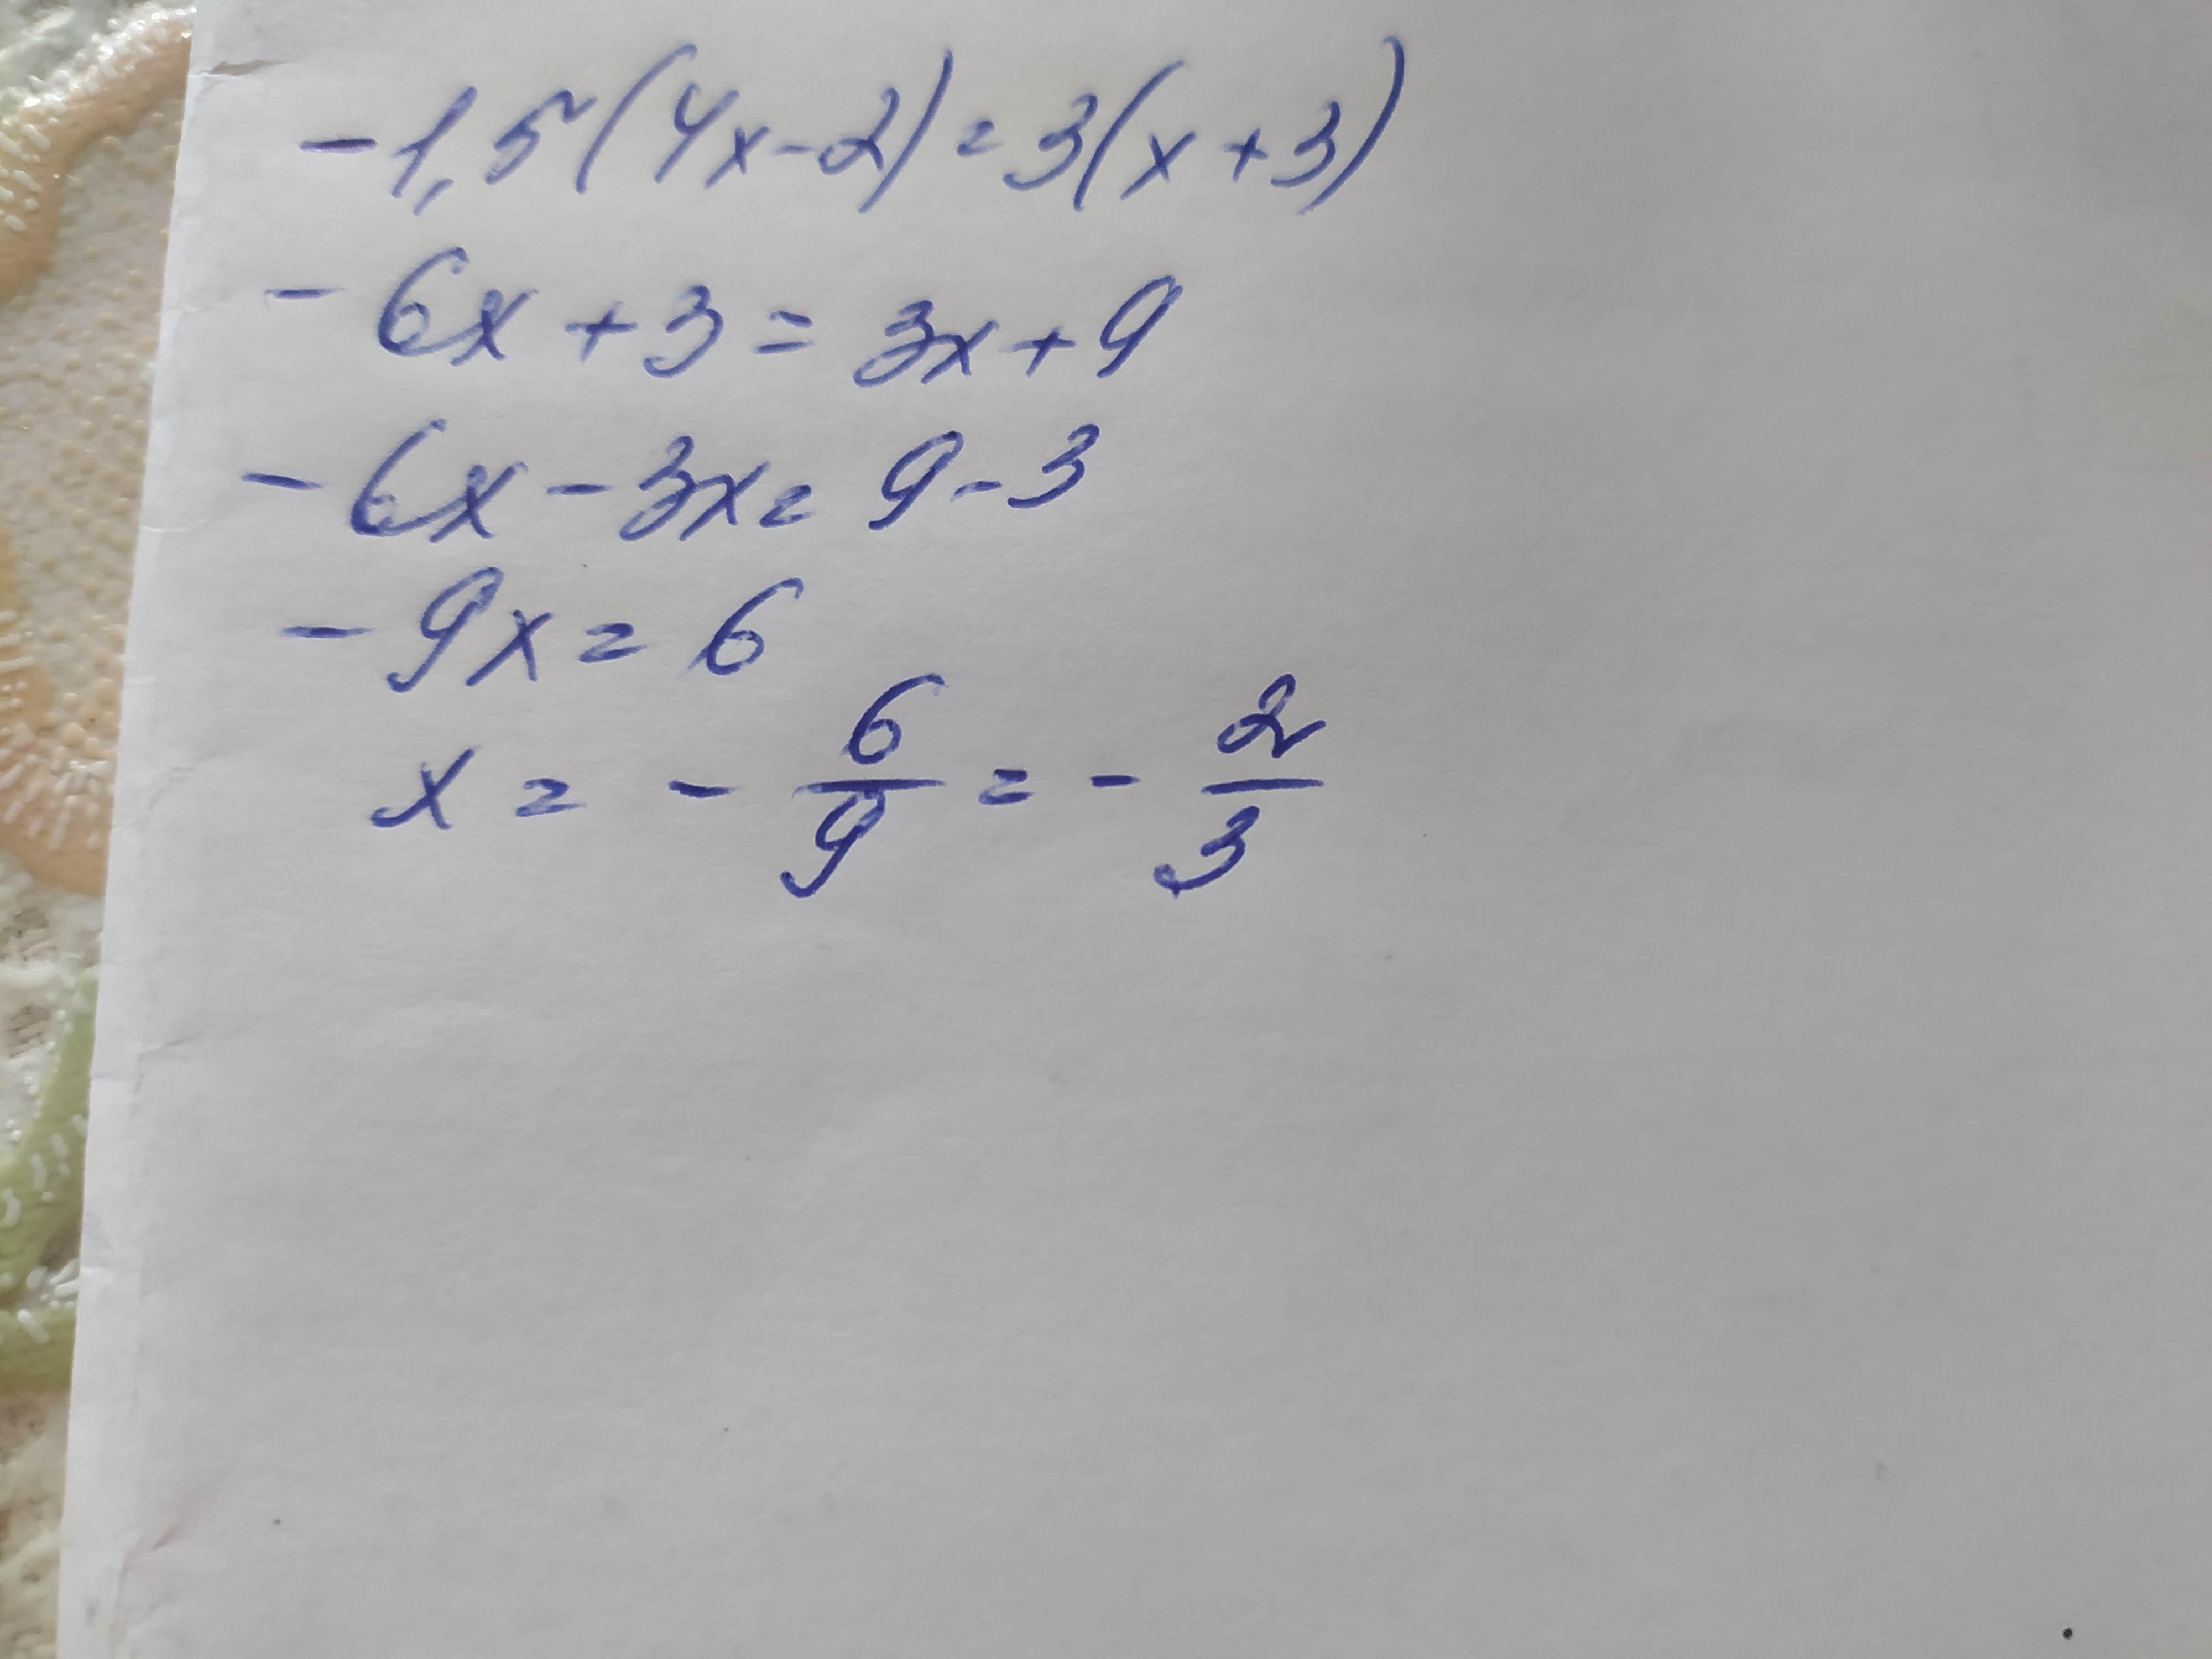 -1,5(4x-2)=3(x+3)
-6x+3=3x+9
-6x-3x=9-3
-9x=6
x=-6/9=-2/3